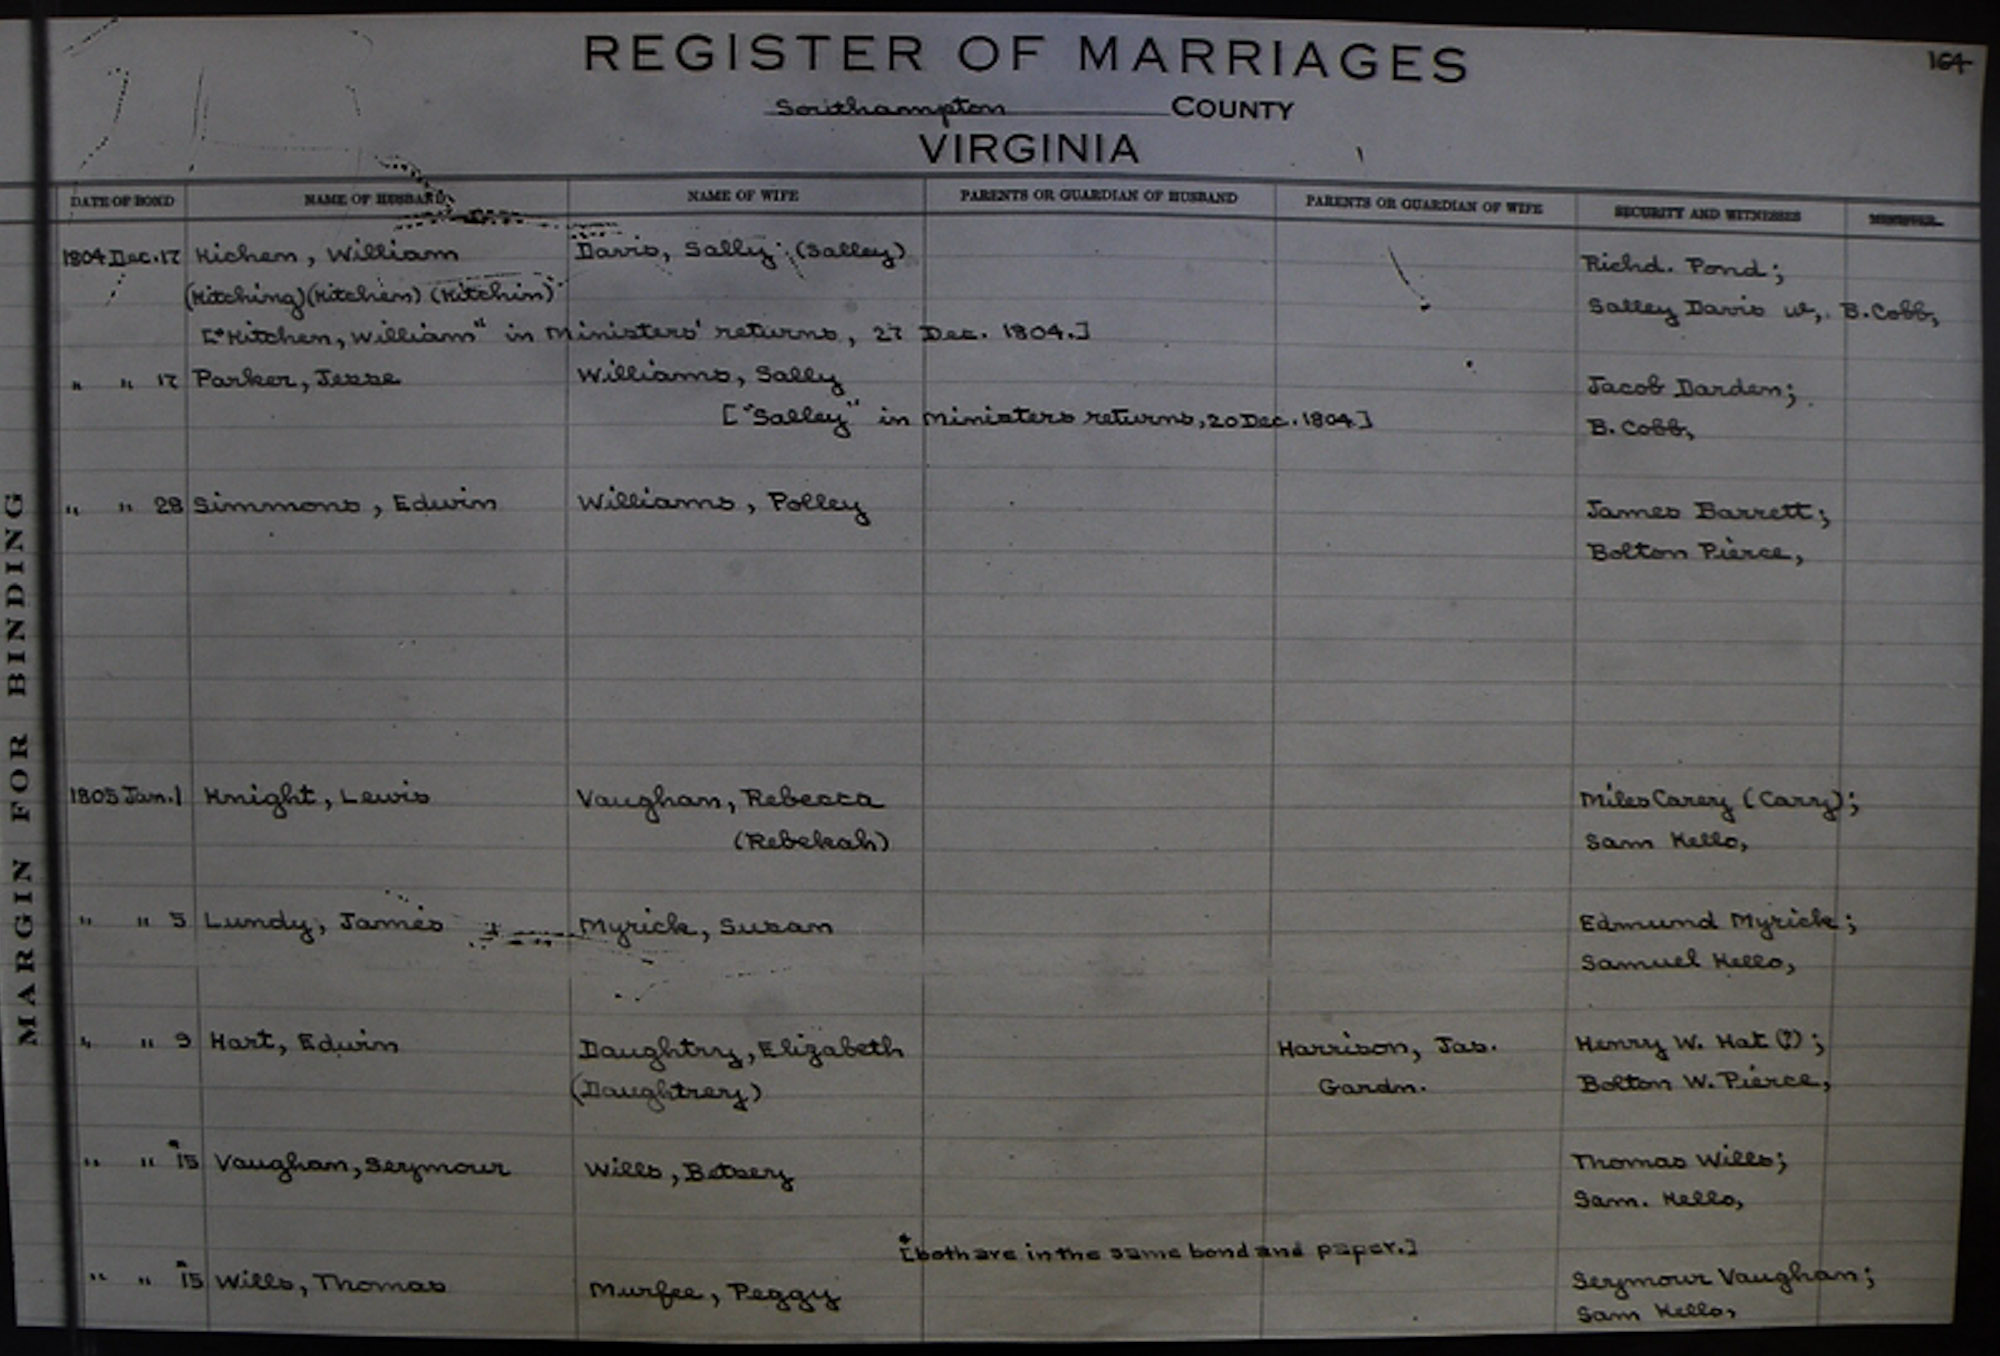 REGISTER OF MARRIAGES
164
Southampton COUNTY
VIRGINIA
DATE OF BOND NAME OF HUSBAND NAME OF WIFE PARENTS OR GUARDIAN OF HUSBAND PARENTS OR GUARDIAN OF WIFE SECURITY AND WITNESSES MINISTER
1804 Dec. 17 Kichen, William Davis, Sally; (Salley) Richd. Pond;
(Kitching) (Kitchen) (Kitchin) Salley Davis w, B. Cobb,
["Kitchen, William" in Ministers' returns, 27 Dec. 1804.]
" " 17 Parker, Jesse Williams, Sally Jacob Darden;
["Salley" in Ministers returns, 20 Dec. 1804] B. Cobb,
" " 28 Simmons, Edwin Williams, Polley James Barrett;
Bolton Pierce,
1805 Jan. 1 Knight, Lewis Vaughan, Rebecca Miles Carey (Cary);
(Rebekah) Sam Kello,
" " 5 Lundy, James Myrick, Susan Edmund Myrick;
Samuel Kello,
" " 9 Hart, Edwin Daughtry, Elizabeth Harrison, Jas. Henry W. Hat (?);
(Daughtrey) Gardn. Bolton W. Pierce,
" " *15 Vaughan, Seymour Wills, Betsey Thomas Wills;
Sam. Kello,
*[both are in the same bond and paper.]
" " *15 Wills, Thomas Murfee, Peggy Seymour Vaughan;
Sam Kello,
MARGIN FOR BINDING